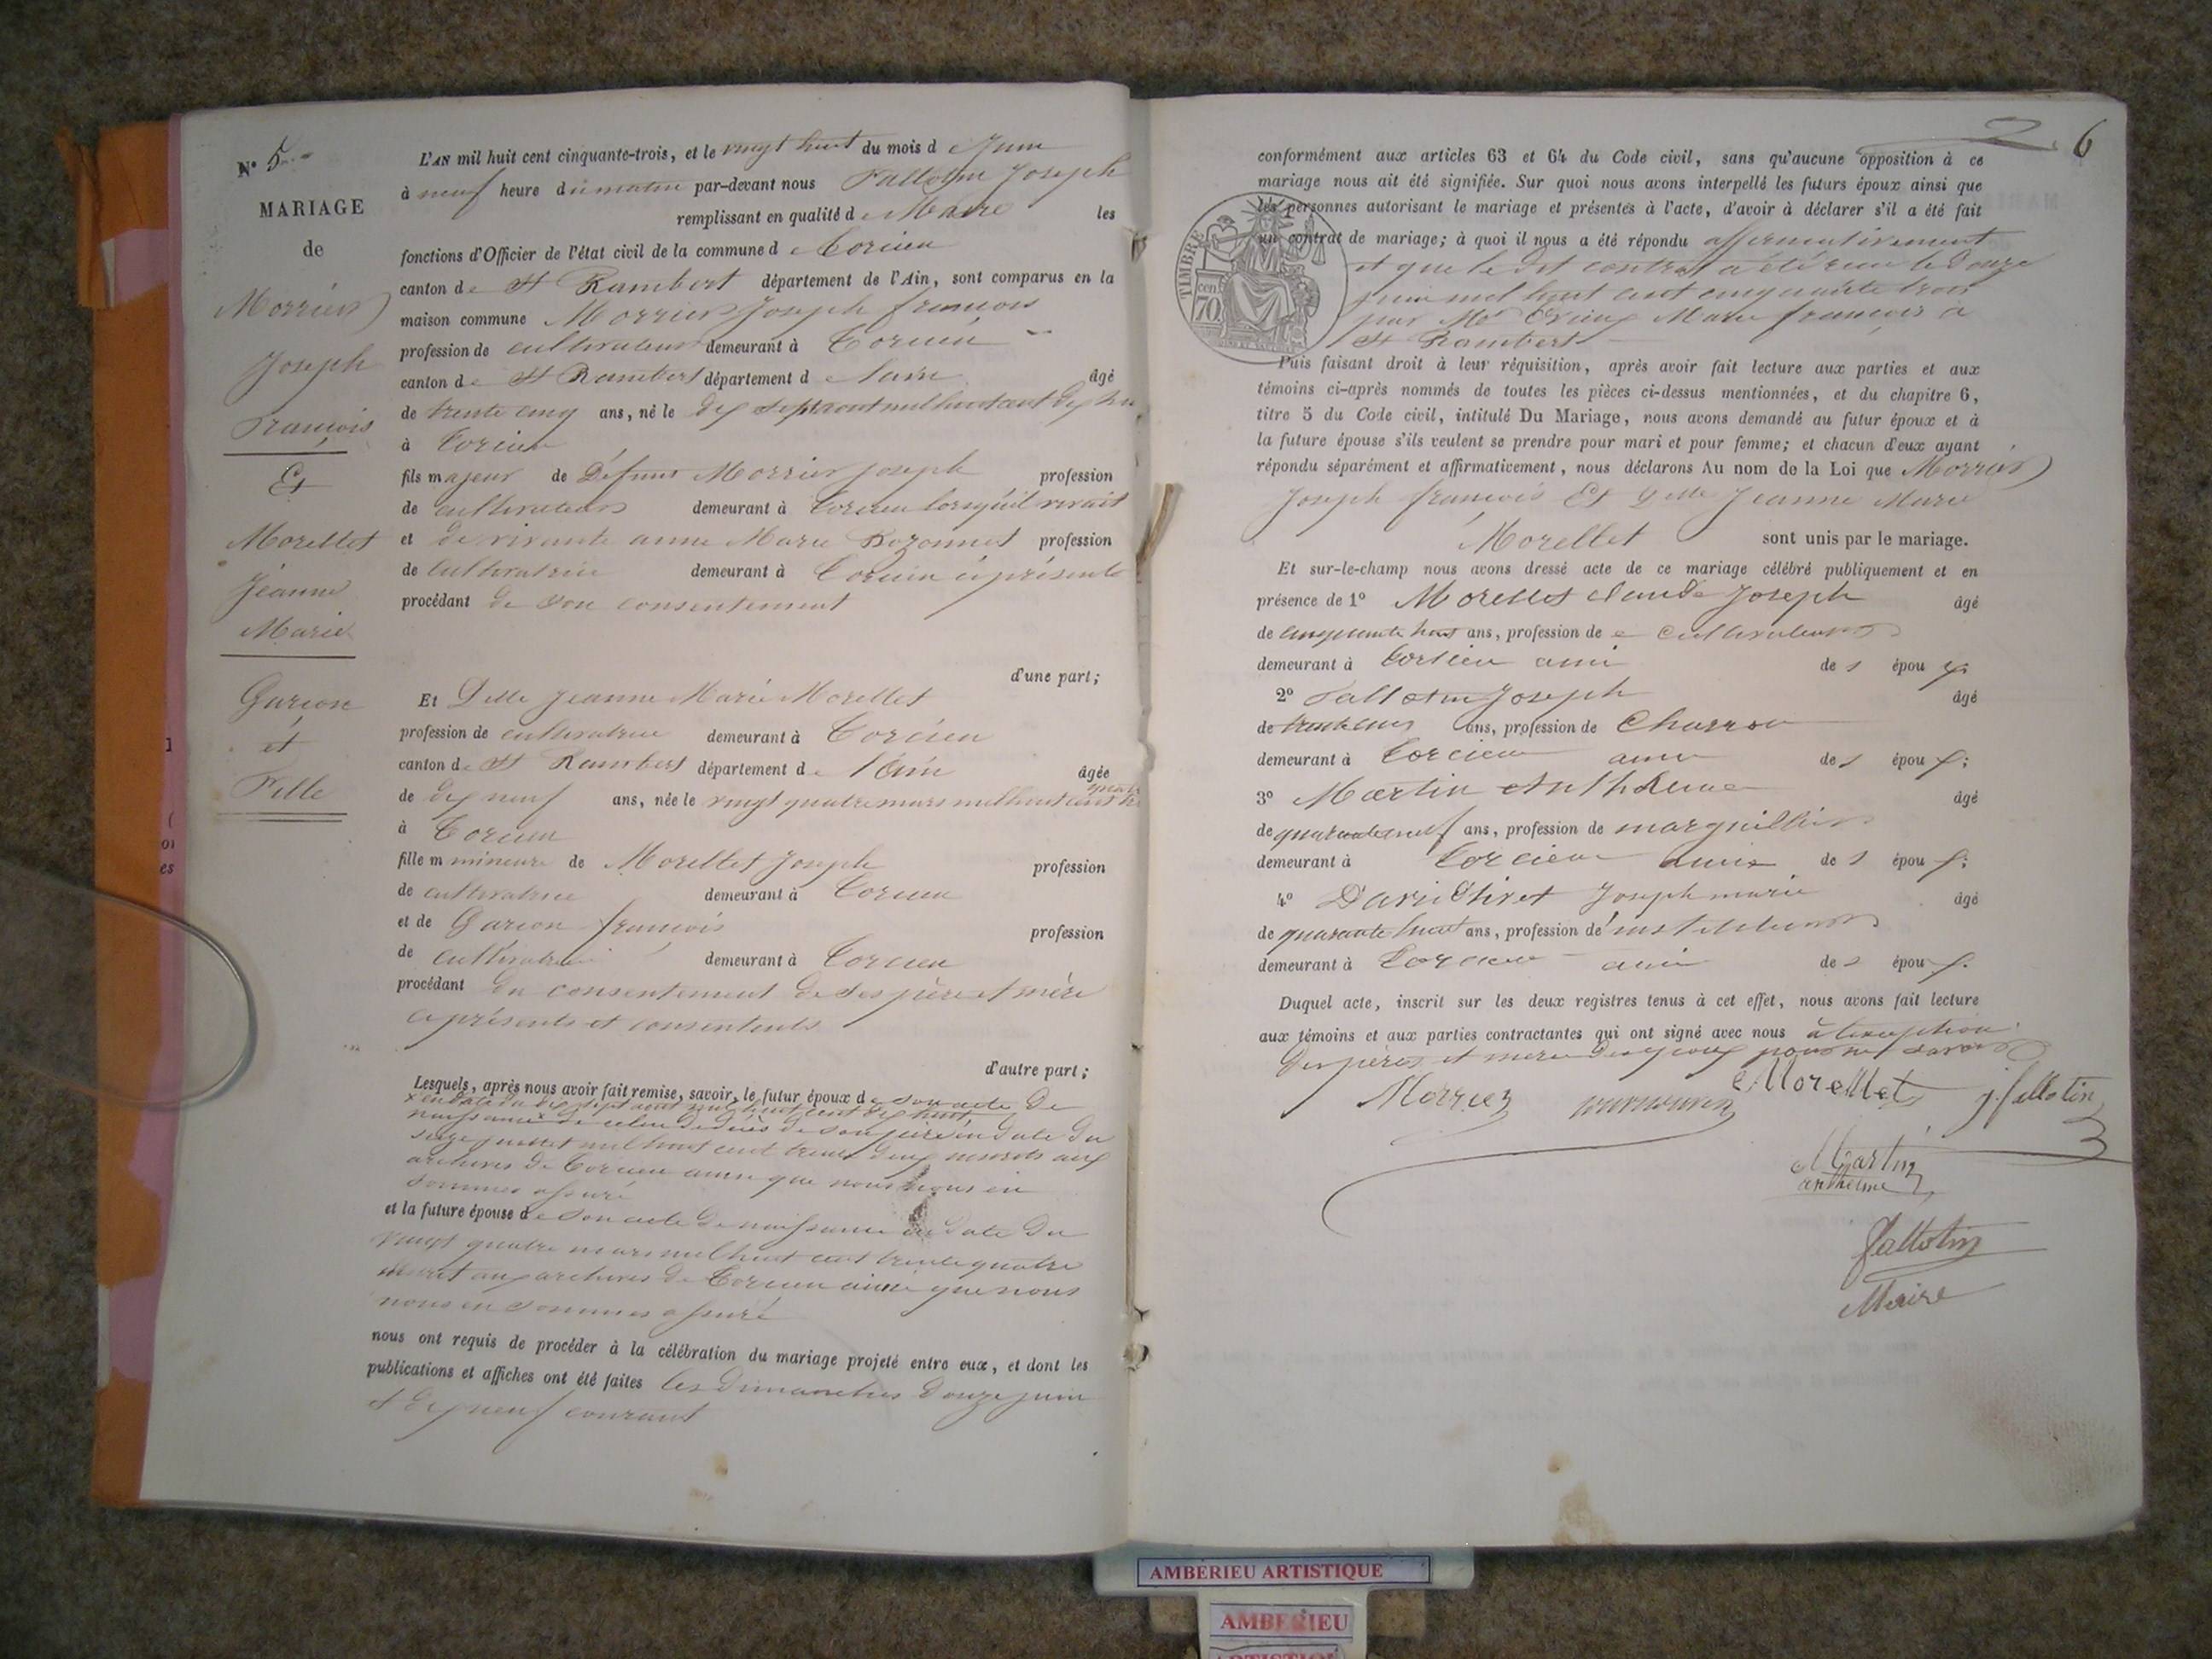 N° 5
MARIAGE
de
Morrier
Joseph
François
Et
Morellet
Jeanne
Marie
Garion
et
Fille
L'AN mil huit cent cinquante-trois, et le vingt huit du mois de Juin
à neuf heure du matin par-devant nous Fallotin Joseph
remplissant en qualité de Maire les
fonctions d'Officier de l'état civil de la commune de Torcieu
canton de St Rambert département de l'Ain, sont comparus en la
maison commune Morrier Joseph francois
profession de cultivateur demeurant à Torcieu
canton de St Rambert département de lain âgé
de trente cinq ans, né le dix sept aout mil huit cent dix huit
à Torcieu
fils majeur de Défunt Morrier Joseph profession
de cultivateur demeurant à Torcieu lorsqu'il vivait
et de vivante anne Marie profession
de Cultivatrice demeurant à Torcieu ci présente
procédant de son consentement
d'une part;
Et Delle Jeanne Marie Morellet
profession de cultivatrice demeurant à Torcieu
canton de St Rambert département de l'Ain âgée
de dix neuf ans, née le vingt quatre mars mil huit cent
à Torcieu
fille m mineure de Morellet Joseph profession
de cultivatrice demeurant à Torcieu
et de Garion francois profession
de cultivatrice demeurant à Torcieu
procédant du consentement de ses père et mère
ci présents et consentents
d'autre part;
Lesquels, après nous avoir fait remise, savoir, le futur époux de son acte de
x en date du dix sept aout mil huit cent dix huit
naissance x de celui de décès de son père en date du
seize juillet mil huit cent trente deux inscrits aux
archives de Torcieu ainsi que nous nous en
sommes assuré
et la future épouse de son acte de naissance en date du
vingt quatre mars mil huit cent trente quatre
inscrit aux archives de Torcieu ainsi que nous
nous en sommes assuré
nous ont requis de procéder à la célébration du mariage projeté entre eux, et dont les
publications et affiches ont été faites les Dimanches Douze juin
et dix neuf courant
2. 6
conformément aux articles 63 et 64 du Code civil, sans qu'aucune opposition à ce
mariage nous ait été signifiée. Sur quoi nous avons interpellé les futurs époux ainsi que
les personnes autorisant le mariage et présentes à l'acte, d'avoir à déclarer s'il a été fait
un contrat de mariage; à quoi il nous a été répondu affirmativement
et que le dit contrat a été recu le Douze
juin mil huit cent cinquante trois
par Me Marie francois à
St Rambert
TIMBRE
cen
70
Puis faisant droit à leur réquisition, après avoir fait lecture aux parties et aux
témoins ci-après nommés de toutes les pièces ci-dessus mentionnées, et du chapitre 6,
titre 5 du Code civil, intitulé Du Mariage, nous avons demandé au futur époux et à
la future épouse s'ils veulent se prendre pour mari et pour femme; et chacun d'eux ayant
répondu séparément et affirmativement, nous déclarons Au nom de la Loi que Morrier
Joseph francois Et Delle Jeanne Marie
Morellet sont unis par le mariage.
Et sur-le-champ nous avons dressé acte de ce mariage célébré publiquement et en
présence de 1° Morellet Claude Joseph âgé
de cinquante huit ans, profession de cultivateur
demeurant à Torcieu ami des époux
2° Fallotin Joseph âgé
de ans, profession de Charron
demeurant à Torcieu ami des époux;
3° Martin Anthelme âgé
de quarante neuf ans, profession de marguillier
demeurant à Torcieu ami des époux;
4° Joseph marie âgé
de quarante huit ans, profession de instituteur
demeurant à Torcieu ami des époux.
Duquel acte, inscrit sur les deux registres tenus à cet effet, nous avons fait lecture
aux témoins et aux parties contractantes qui ont signé avec nous à l'exception
Des pères et mere des epoux pour ne savoir
Morrier Morellet j. fallotin
Martin
anthelme
Fallotin
Maire
AMBÉRIEU ARTISTIQUE
AMBERIEU
ARTISTIQUE